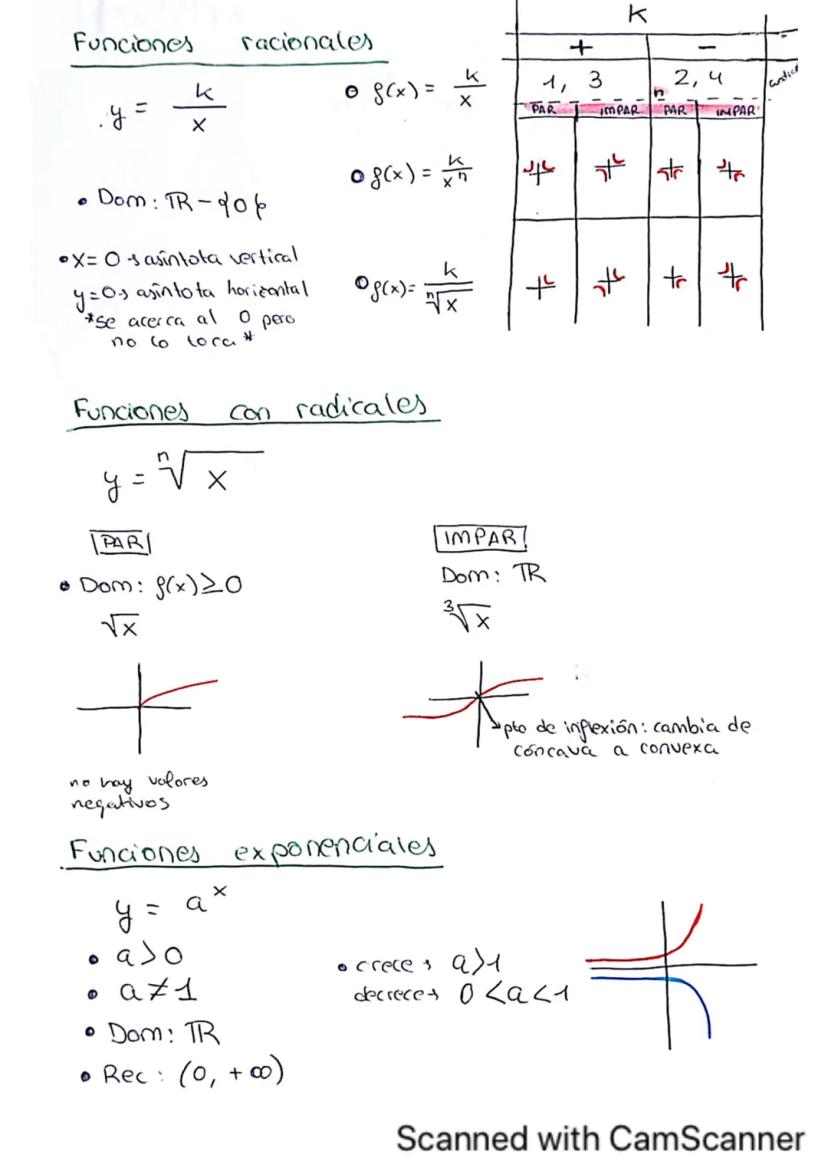 Funciones racionales
y = k/x
• Dom: ℝ - {0}
• x = 0 → asíntota vertical
y = 0 → asíntota horizontal
*se acerca al 0 pero
no lo toca*
• f(x) = k/x
• f(x) = k/xⁿ
• f(x) = k/ⁿ√x
K
+ -
1, 3 2, 4
n
PAR IMPAR PAR IMPAR
Funciones con radicales
y = ⁿ√x
PAR
• Dom: f(x) ≥ 0
√x
no hay valores
negativos
IMPAR
Dom: ℝ
³√x
pto de inflexión: cambia de
cóncava a convexa
Funciones exponenciales
y = aˣ
• a > 0
• a ≠ 1
• Dom: ℝ
• Rec: (0, +∞)
• crece → a > 1
decrece → 0 < a < 1
Scanned with CamScanner